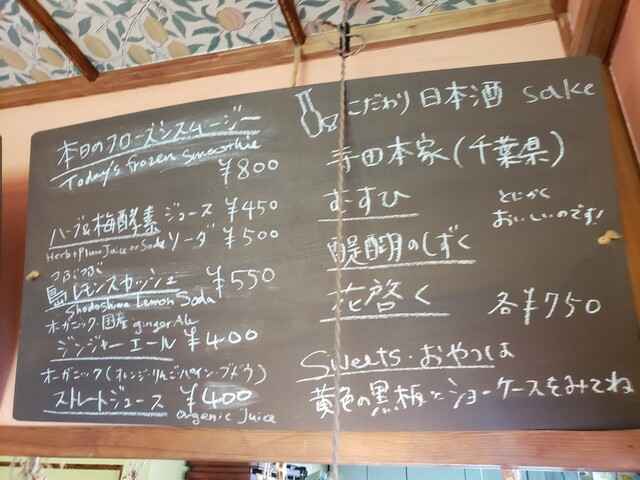 本日のフローズンスムージー
Today's frozen smoothie
¥800
ハーブ&梅酵素 ジュース ¥450
ソーダ ¥500
Herb+Plum Juice or Soda
つぶつぶ
島レモンスカッシュ ¥550
Shodoshima Lemon Soda
オーガニック・国産 gingerAle
ジンジャーエール ¥400
オーガニック(オレンジ・りんご・パイン・ブドウ)
ストレートジュース ¥400
organic Juice
こだわり 日本酒 sake
寺田本家(千葉県)
むすひ
とにかく
おいしいのです!
醍醐のしずく
花啓く 各¥750
Sweets・おやつは
黄色の黒板とショーケースをみてね